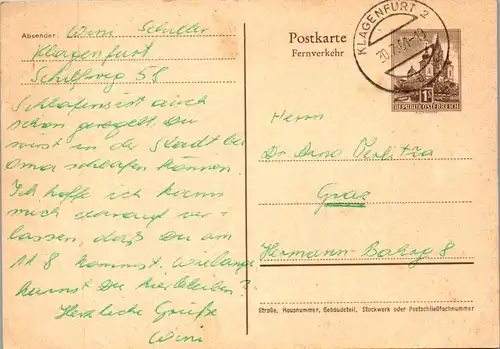 Absender: Wini Schuller
Klagenfurt
Schilfweg 58
Schlafens ist auch
schon geregelt. Du
wirst in der Stadt bei
Oma schlafen können.
Ich hoffe ich kann
mich darauf ver-
lassen, daß Du am
11.8 kommst. Wielange
kannst Du hierbleiben?
Herzliche Grüße
Wini
Postkarte
Fernverkehr
KLAGENFURT 2
1S
REPUBLIK ÖSTERREICH
Herrn
Dr. Arno
Graz
Hermann-Bahrg 8
Straße, Hausnummer, Gebäudeteil, Stockwerk oder Postschließfachnummer